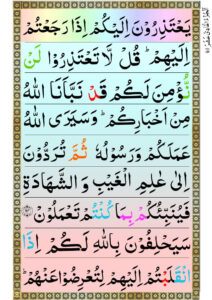 يَعْتَذِرُوْنَ اِلَيْكُمْ اِذَا رَجَعْتُمْ
اِلَيْهِمْ ؕ قُلْ لَّا تَعْتَذِرُوْا لَنْ
نُّؤْمِنَ لَكُمْ قَدْ نَبَّاَنَا اللّٰهُ
مِنْ اَخْبَارِكُمْ ؕ وَسَيَرَى اللّٰهُ
عَمَلَكُمْ وَرَسُوْلُهٗ ثُمَّ تُرَدُّوْنَ
اِلٰى عٰلِمِ الْغَيْبِ وَالشَّهَادَةِ
فَيُنَبِّئُكُمْ بِمَا كُنْتُمْ تَعْمَلُوْنَ
سَيَحْلِفُوْنَ بِاللّٰهِ لَكُمْ اِذَا
انْقَلَبْتُمْ اِلَيْهِمْ لِتُعْرِضُوْا عَنْهُمْ ؕ